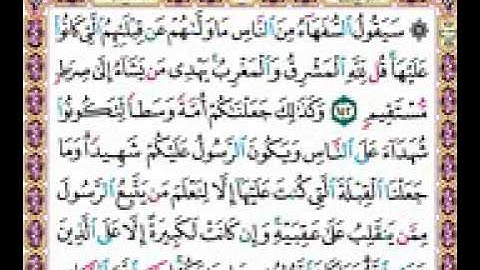 ۞ سَيَقُولُ السُّفَهَاءُ مِنَ النَّاسِ مَا وَلَّىٰهُمْ عَن قِبْلَتِهِمُ الَّتِي كَانُوا
عَلَيْهَا قُل لِّلَّهِ الْمَشْرِقُ وَالْمَغْرِبُ يَهْدِي مَن يَشَاءُ إِلَىٰ صِرَٰطٍ
مُّسْتَقِيمٍ ١٤٢ وَكَذَٰلِكَ جَعَلْنَٰكُمْ أُمَّةً وَسَطًا لِّتَكُونُوا
شُهَدَاءَ عَلَى النَّاسِ وَيَكُونَ الرَّسُولُ عَلَيْكُمْ شَهِيدًا وَمَا
جَعَلْنَا الْقِبْلَةَ الَّتِي كُنتَ عَلَيْهَا إِلَّا لِنَعْلَمَ مَن يَتَّبِعُ الرَّسُولَ
مِمَّن يَنقَلِبُ عَلَىٰ عَقِبَيْهِ وَإِن كَانَتْ لَكَبِيرَةً إِلَّا عَلَى الَّذِينَ